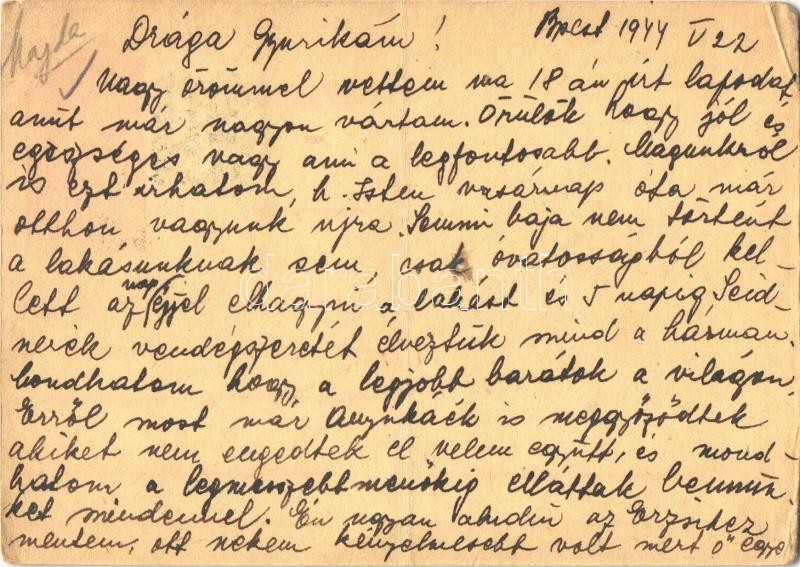 Majsa
Drága Gyurikám! Bpest 1944 V 22
Nagy örömmel vettem ma 18 án írt lapodat,
amit már nagyon vártam. Örülök hogy jól és
egészséges vagy ami a legfontosabb. Magunkról
is ezt írhatom, h. Isten vasárnap óta már
otthon vagyunk újra. Semmi baja nem történt
a lakásunknak sem, csak óvatosságból kel-
lett az éjjel elhagyni a lakást és 5 napig Seid-
nap
nerék vendégszeretét élveztük mind a hárman.
Mondhatom hogy a legjobb barátok a világon.
Erről most már Anyukáék is meggyőződtek
akiket nem engedtek el velem együtt, és mond-
hatom a legmesszebbmenőkig elláttak bennün-
ket mindennel. Én ugyan aludni az Erzsihez
mentem, ott nekem kényelmesebb volt mert ő egye
darabanth